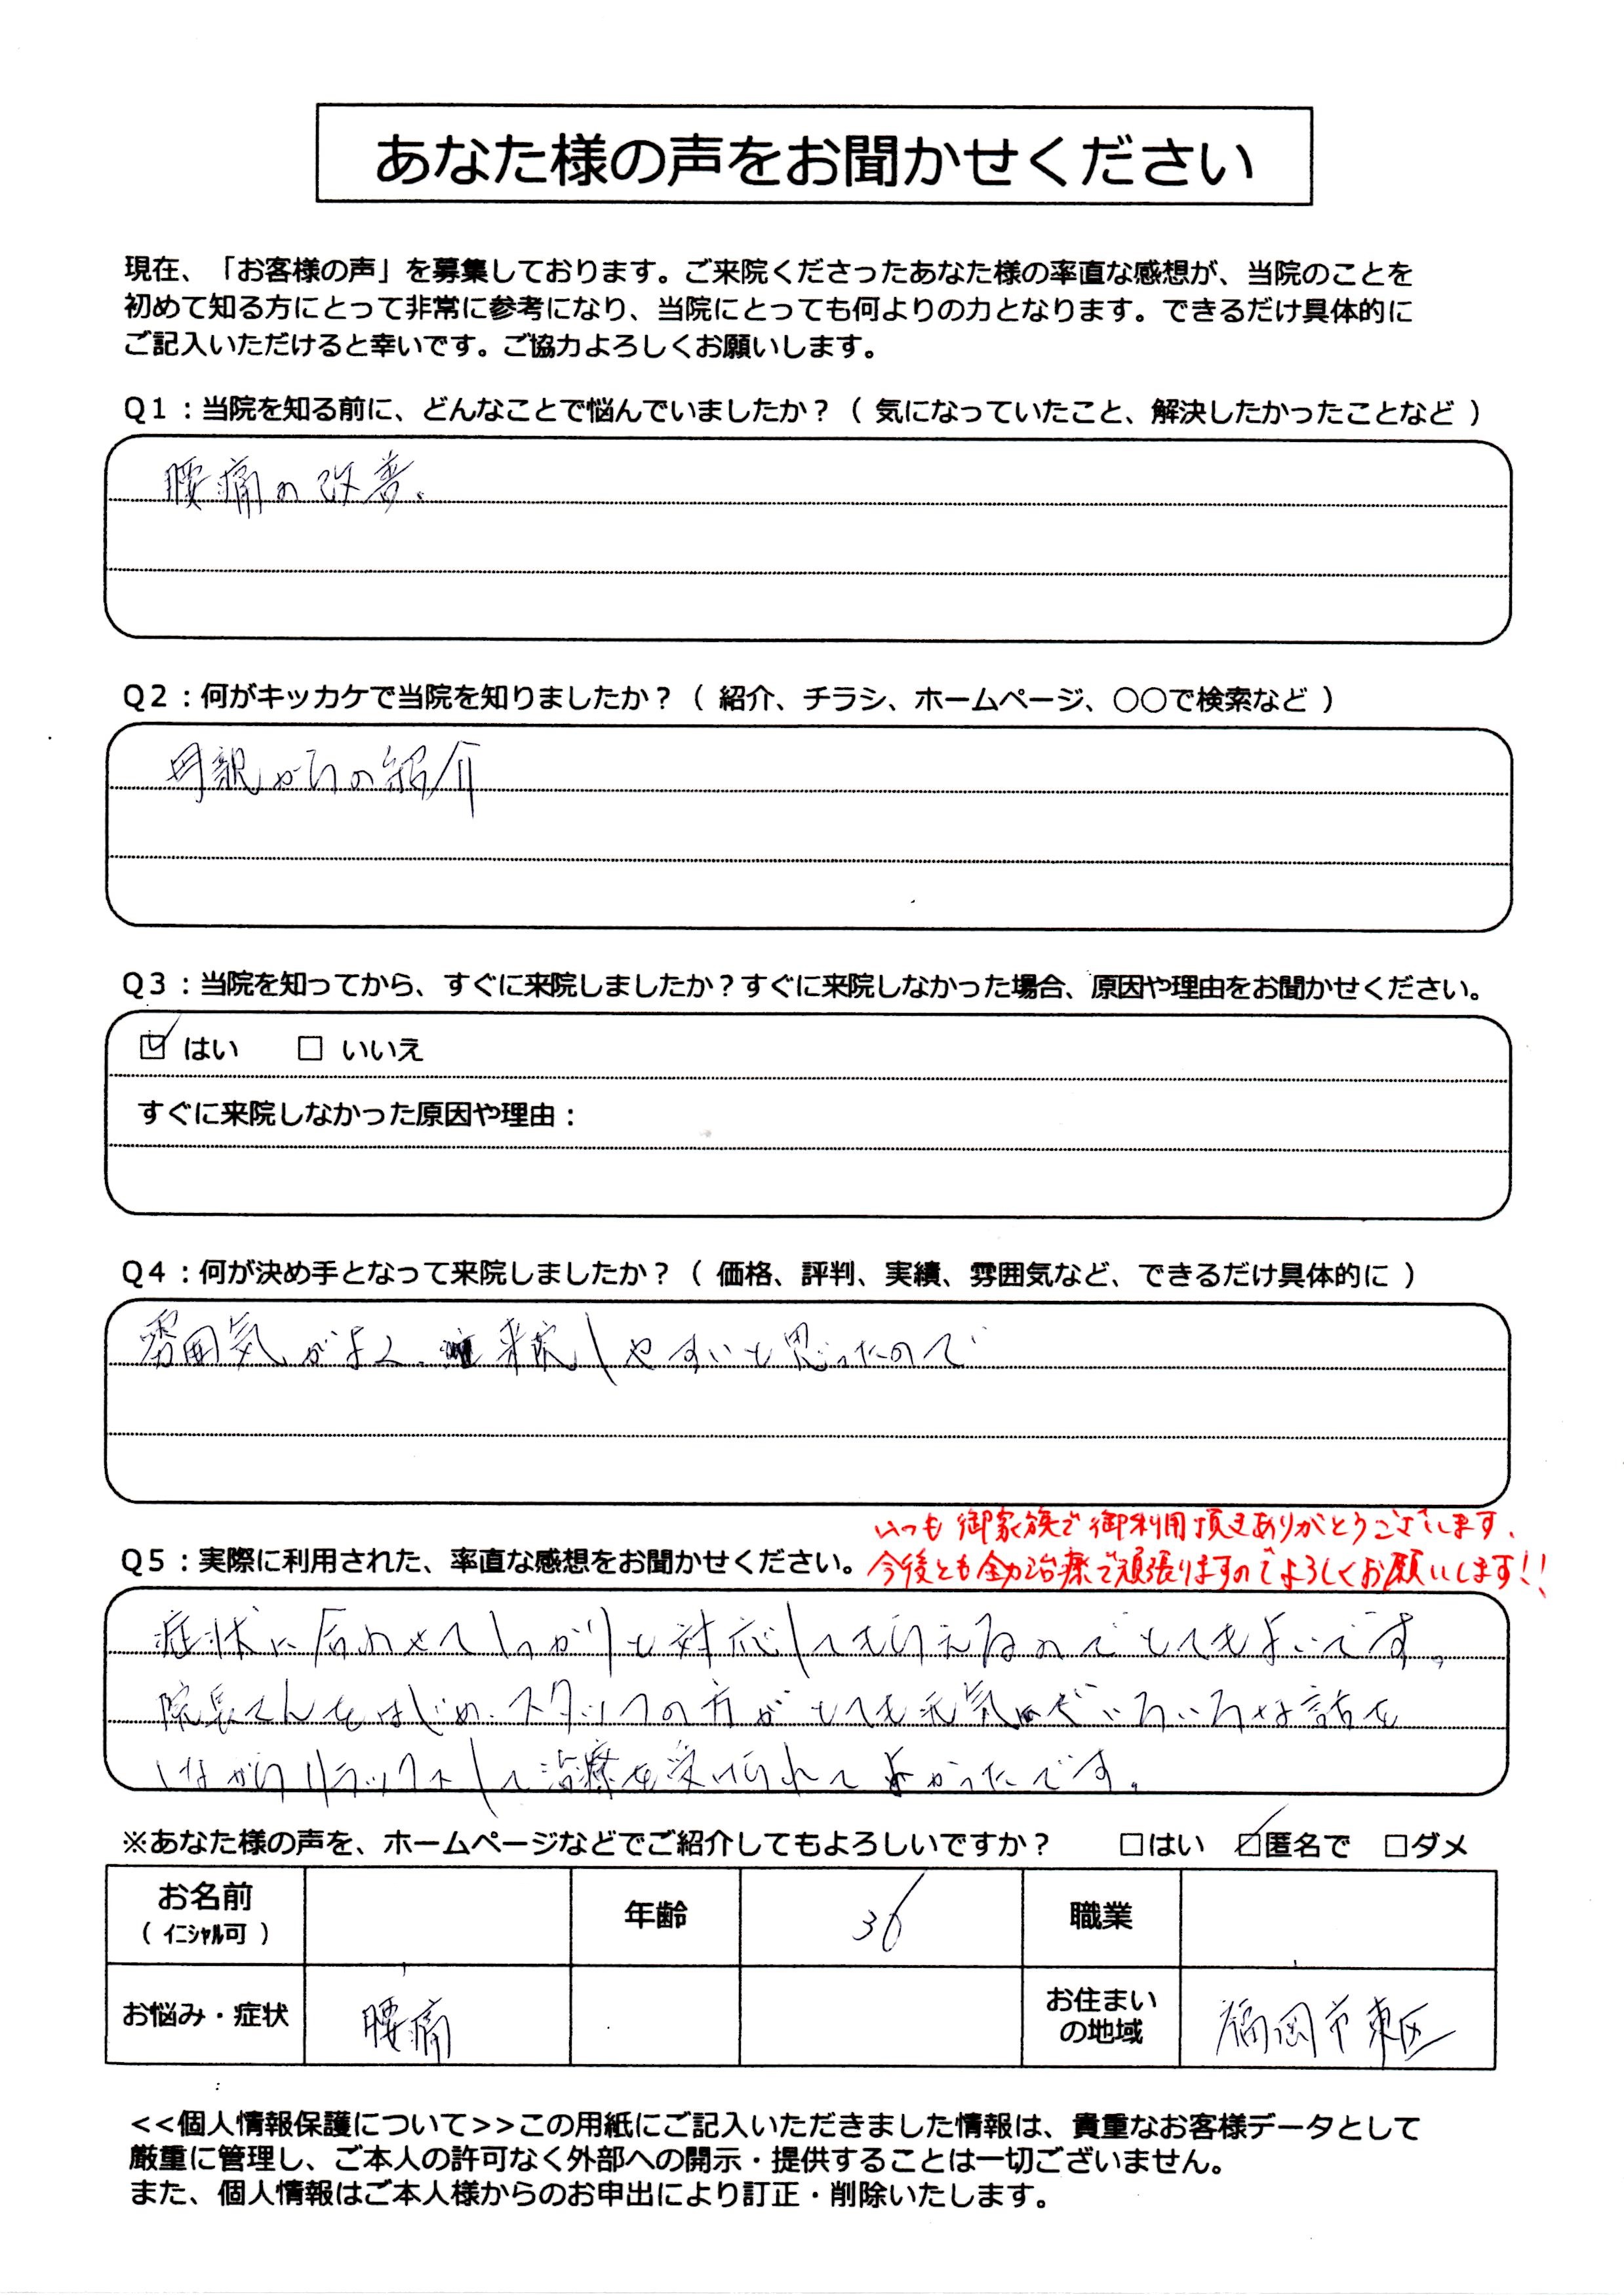 あなた様の声をお聞かせください
現在、「お客様の声」を募集しております。ご来院くださったあなた様の率直な感想が、当院のことを
初めて知る方にとって非常に参考になり、当院にとっても何よりの力となります。できるだけ具体的に
ご記入いただけると幸いです。ご協力よろしくお願いします。
Q1：当院を知る前に、どんなことで悩んでいましたか？（ 気になっていたこと、解決したかったことなど ）
腰痛の改善。
Q2：何がキッカケで当院を知りましたか？（ 紹介、チラシ、ホームページ、〇〇で検索など ）
母親からの紹介
Q3：当院を知ってから、すぐに来院しましたか？すぐに来院しなかった場合、原因や理由をお聞かせください。
☑ はい　□ いいえ
すぐに来院しなかった原因や理由：
Q4：何が決め手となって来院しましたか？（ 価格、評判、実績、雰囲気など、できるだけ具体的に ）
雰囲気がよく、来院しやすいと思ったので
いつも御家族で御利用頂きありがとうございます、
Q5：実際に利用された、率直な感想をお聞かせください。今後とも全力治療で頑張りますのでよろしくお願いします!!
症状に合わせてしっかりと対応してもらえるのでとてもよいです。
院長さんをはじめ、スタッフの方がとても元気でいろいろな話を
しながらリラックスして治療を受けられてよかったです。
※あなた様の声を、ホームページなどでご紹介してもよろしいですか？　□はい　☑匿名で　□ダメ
お名前
（ ｲﾆｼｬﾙ可 ）
年齢
36
職業
お悩み・症状
腰痛
お住まい
の地域
福岡市東区
<<個人情報保護について>>この用紙にご記入いただきました情報は、貴重なお客様データとして
厳重に管理し、ご本人の許可なく外部への開示・提供することは一切ございません。
また、個人情報はご本人様からのお申出により訂正・削除いたします。